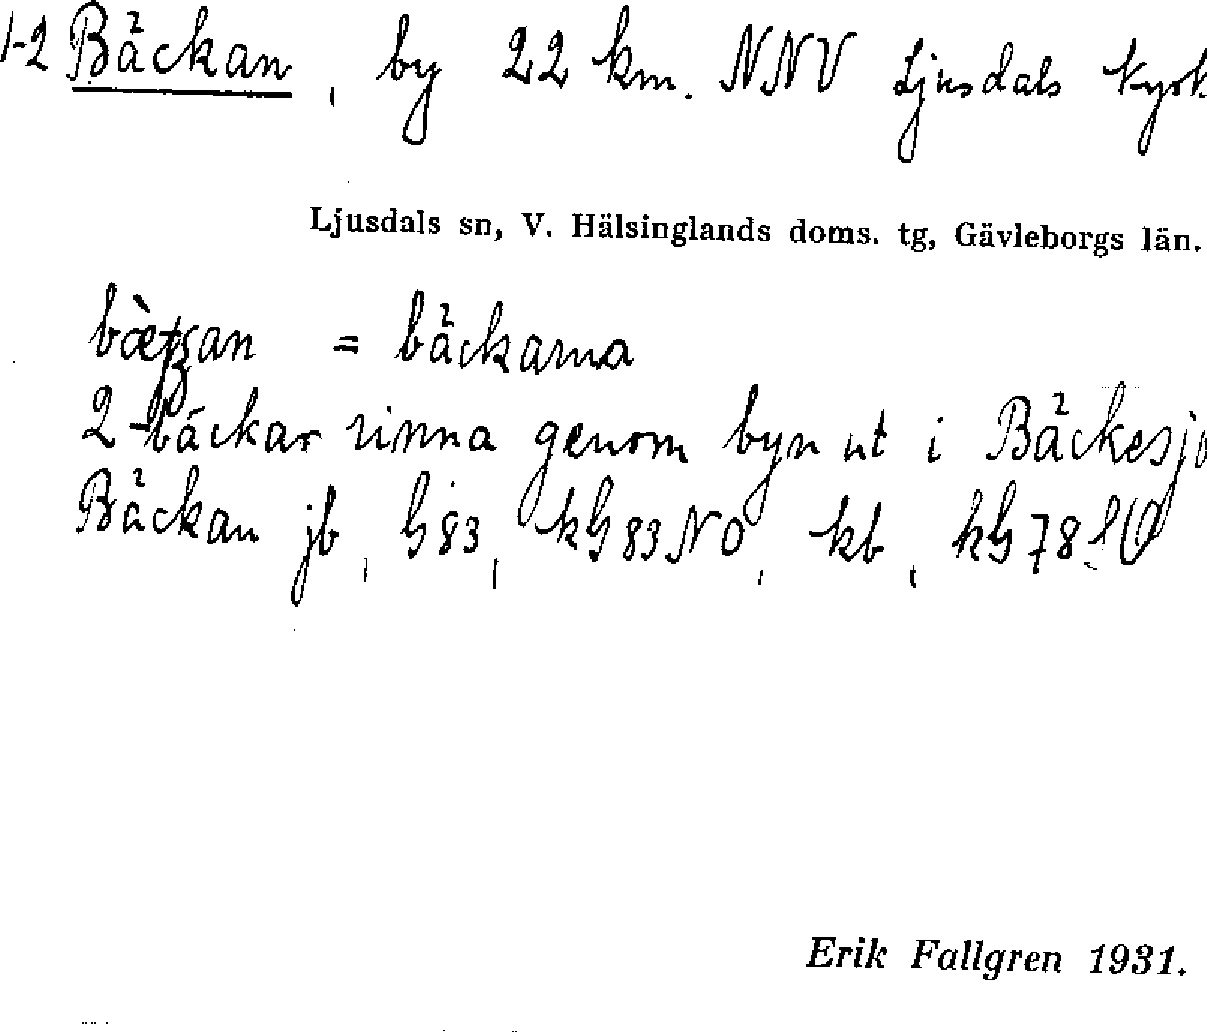 1-2 Bäckan, by 22 km. NNV Ljusdals kyrk
Ljusdals sn, V. Hälsinglands doms. tg, Gävleborgs län.
= bäckarna
2 bäckar rinna genom byn ut i Bäckesjö
Bäckan jb, G 83, kG 83 NO, kb, kG 78
Erik Fallgren 1931.